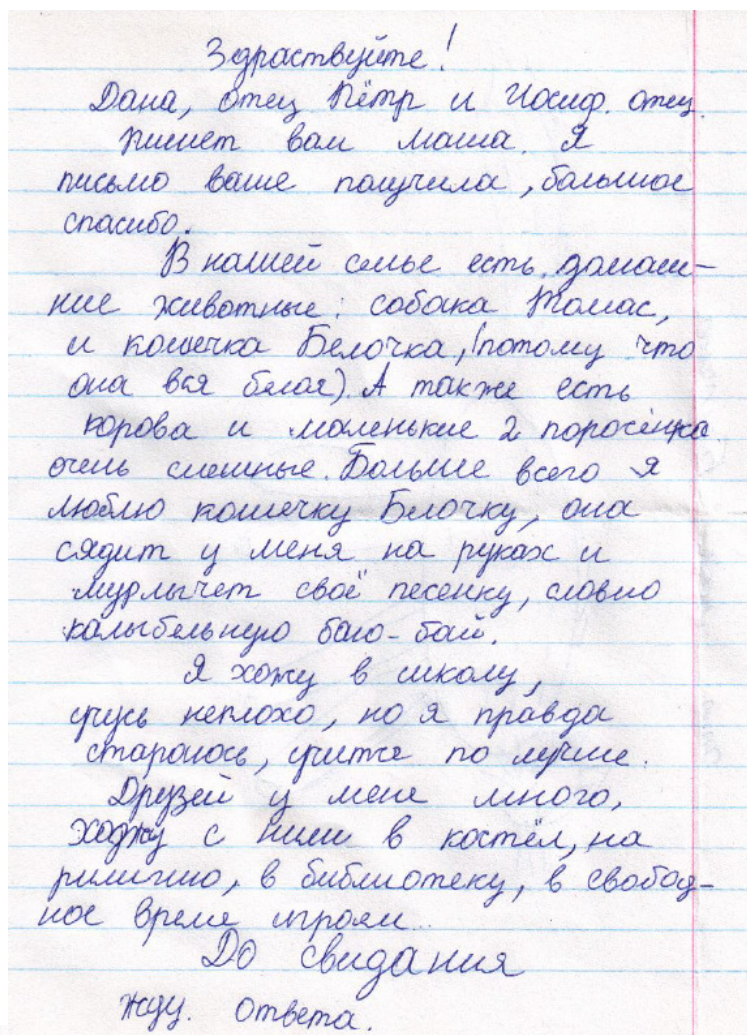 Здраствуйте!
Дана, отец Пётр и Иосиф. отец.
Пишет вам Маша. Я
письмо ваше получила, большое
спасибо.
В нашей семье есть домаш-
ние животные: собака Томас,
и кошечка Белочка, (потому что
она вся белая). А также есть
корова и маленькие 2 поросёнка
очень смешные. Больше всего я
люблю кошечку Белочку, она
сядит у меня на руках и
мурлычет своё песенку, словно
калыбельную баю-бай.
Я хожу в школу,
учусь неплохо, но я правда
стараюсь, учится по лучше.
Друзей у мене много,
хожу с ними в костёл, на
рилигию, в библиотеку, в свобод-
ное время играем..
До свидания
Жду. ответа.